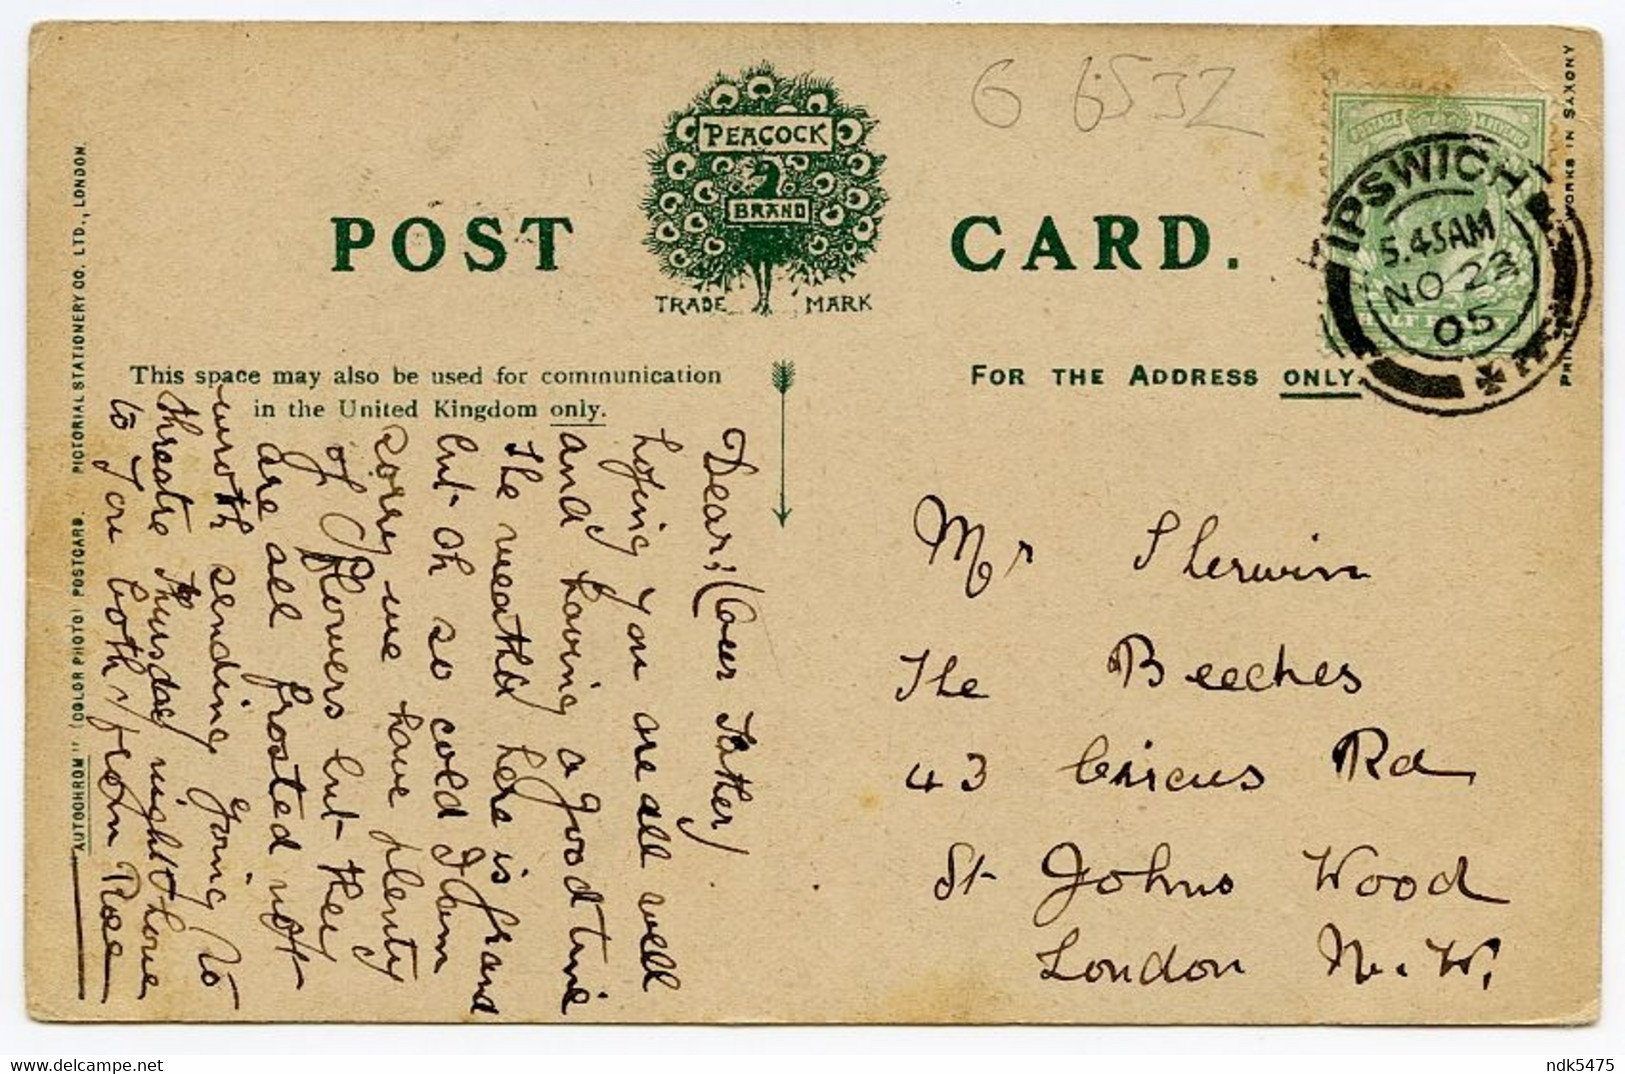 G 6532
PEACOCK
BRAND
POST CARD.
TRADE MARK
IPSWICH
5.45AM
NO 23
05
HALF PENNY
This space may also be used for communication
in the United Kingdom only.
FOR THE ADDRESS ONLY.
"AUTOCHROM" (COLOR PHOTO) POSTCARD. PICTORIAL STATIONERY CO. LTD., LONDON.
WORKS IN SAXONY
Dear (Our Father)
hoping you are all well
and having a good time
the weather here is grand
but oh so cold I am
sorry we have plenty
of flowers but they
are all frosted not
wroth sending going to
threatre Thursday night love
to you both from Rose
Mr Sherwin
The Beeches
43 Circus Rd
St Johns Wood
London N.W.
ndk5475